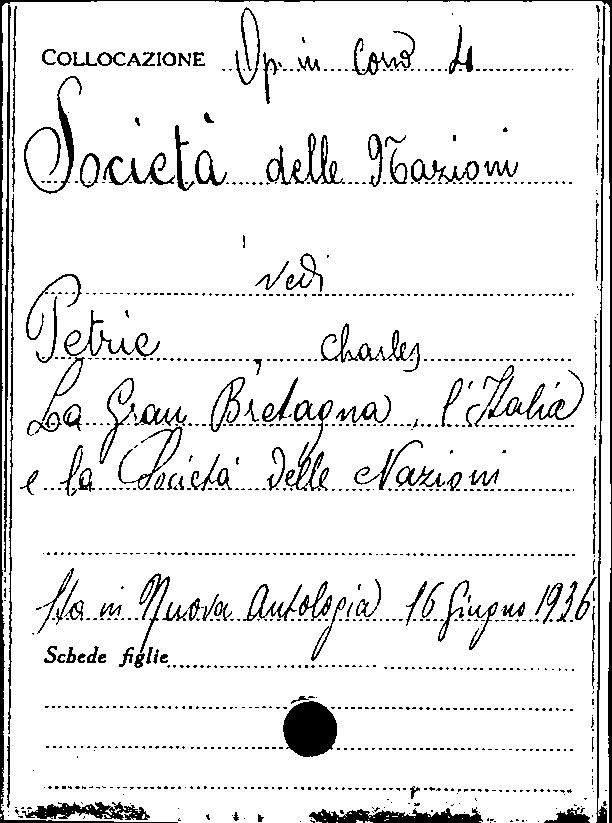 COLLOCAZIONE Op. in cons 4
Società delle Nazioni
vedi
Petrie, Charles
La Gran Bretagna, l'Italia
e la Società delle Nazioni
Sta in Nuova Antologia 16 Giugno 1936
Schede figlie